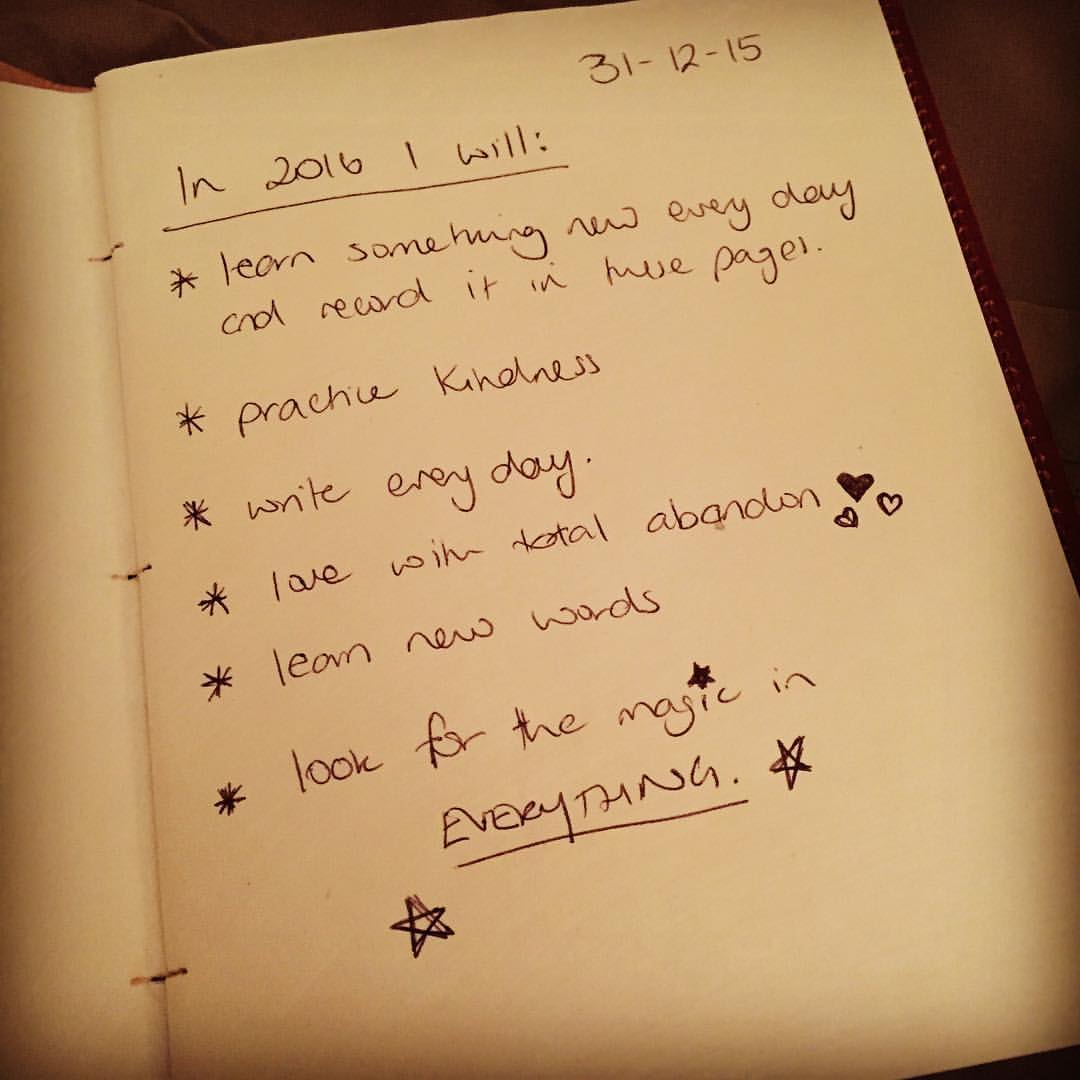 31-12-15
In 2016 I will:
* learn something new every day
and record it in these pages.
* practice kindness
* write every day.
* love with total abandon
* learn new words
* look for the magic in
EVERYTHING.